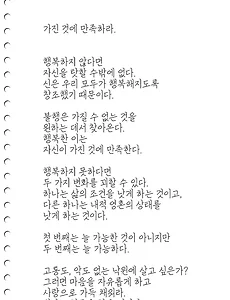 가진 것에 만족하라.
행복하지 않다면
자신을 탓할 수밖에 없다.
신은 우리 모두가 행복해지도록
창조했기 때문이다.
불행은 가질 수 없는 것을
원하는 데서 찾아온다.
행복한 이는
자신이 가진 것에 만족한다.
행복하지 못하다면
두 가지 변화를 꾀할 수 있다.
하나는 삶의 조건을 낫게 하는 것이고,
다른 하나는 내적 영혼의 상태를
낫게 하는 것이다.
첫 번째는 늘 가능한 것이 아니지만
두 번째는 늘 가능하다.
고통도, 악도 없는 낙원에 살고 싶은가?
그러면 마음을 자유롭게 하고
사랑으로 가득 채워라.